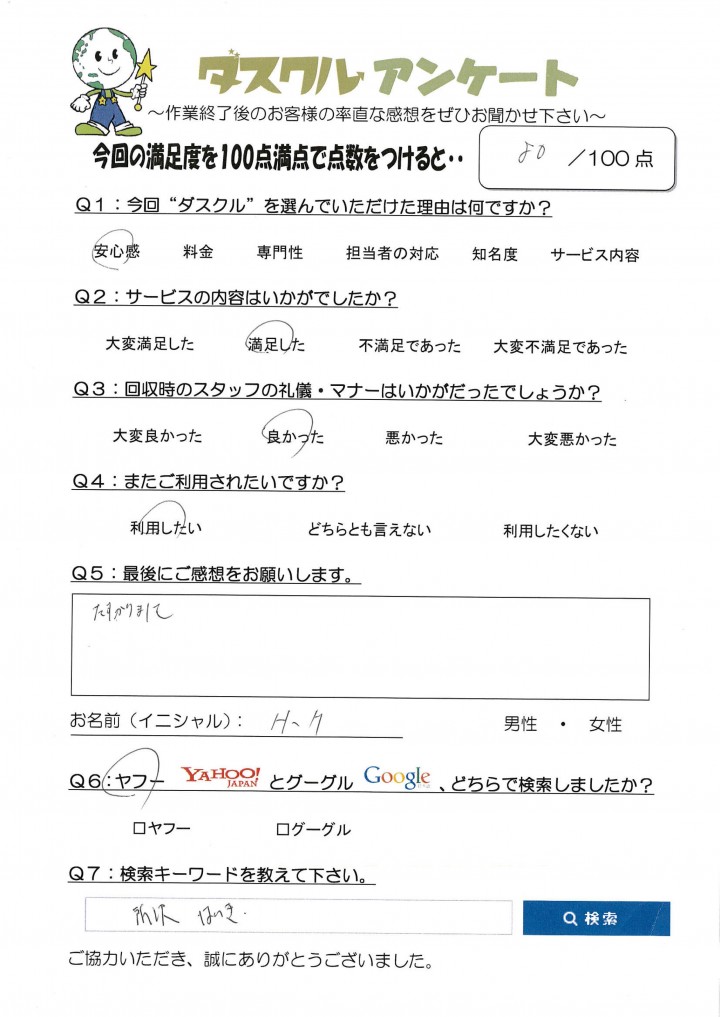 ダスクル アンケート
～作業終了後のお客様の率直な感想をぜひお聞かせ下さい～
今回の満足度を100点満点で点数をつけると‥ 80 ／100 点
Q1：今回“ダスクル”を選んでいただけた理由は何ですか？
安心感 料金 専門性 担当者の対応 知名度 サービス内容
Q2：サービスの内容はいかがでしたか？
大変満足した 満足した 不満足であった 大変不満足であった
Q3：回収時のスタッフの礼儀・マナーはいかがだったでしょうか？
大変良かった 良かった 悪かった 大変悪かった
Q4：またご利用されたいですか？
利用したい どちらとも言えない 利用したくない
Q5：最後にご感想をお願いします。
たすかりました
お名前（イニシャル）： 男性 ・ 女性
Q6：ヤフー YAHOO! JAPAN とグーグル Google 、どちらで検索しましたか？
□ヤフー □グーグル
Q7：検索キーワードを教えて下さい。
所沢 はいき 検索
ご協力いただき、誠にありがとうございました。